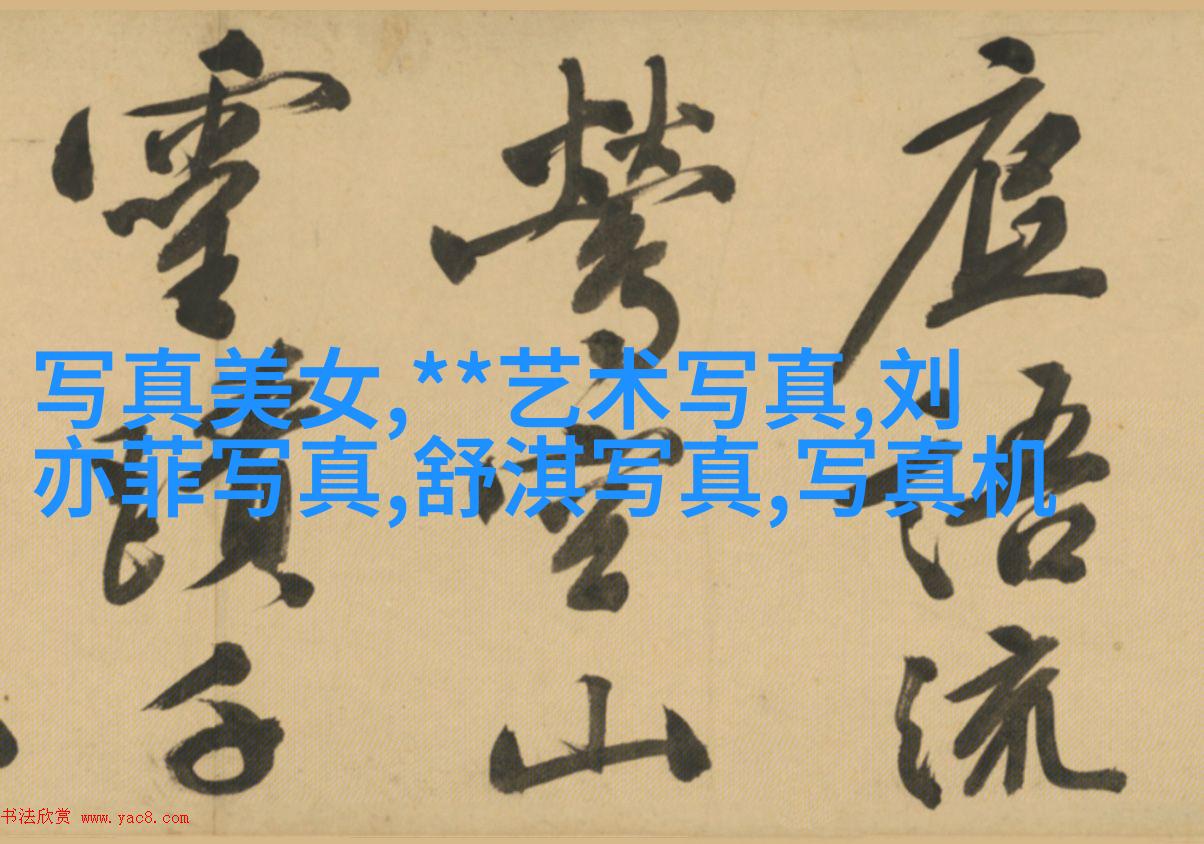 庭語流
鶯空山
霊
子
写真美女,**艺术写真,刘
亦菲写真,舒淇写真,写真机
书法欣赏 www.yac8.com